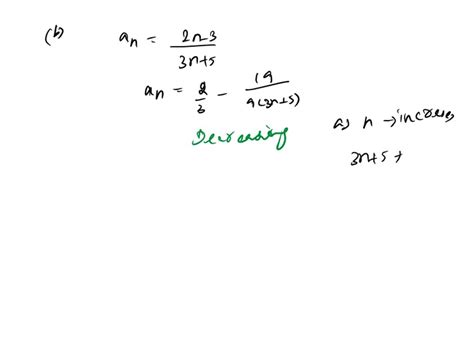 (b) an = 2n-3 / 3n+5
an = 2/3 - 19 / 9(3n+5)
Decreasing
as n → increases
3n+5 +